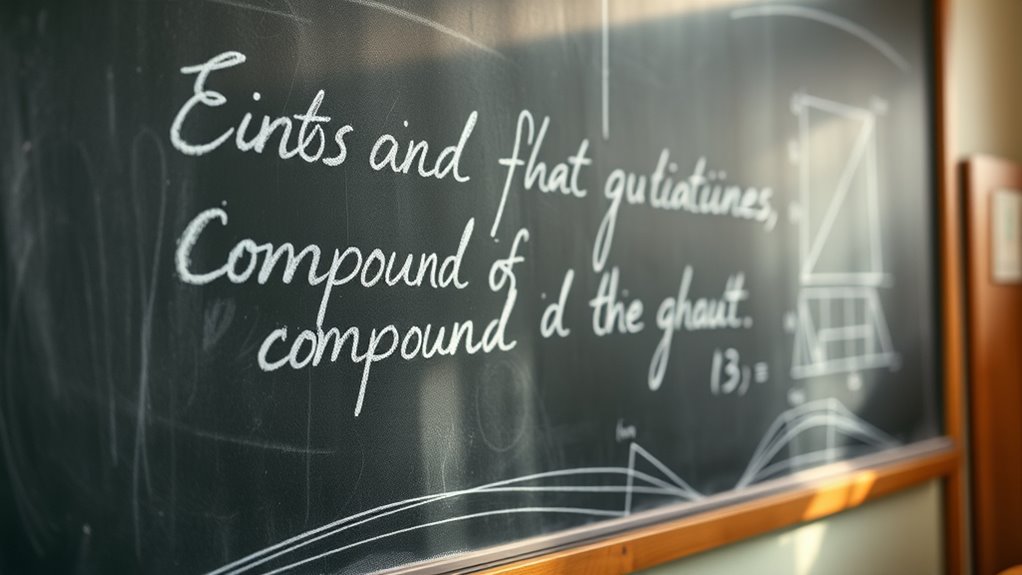 Eintss and fhat gutiatiines,
Compound of
compound d the ghaut.
13, =